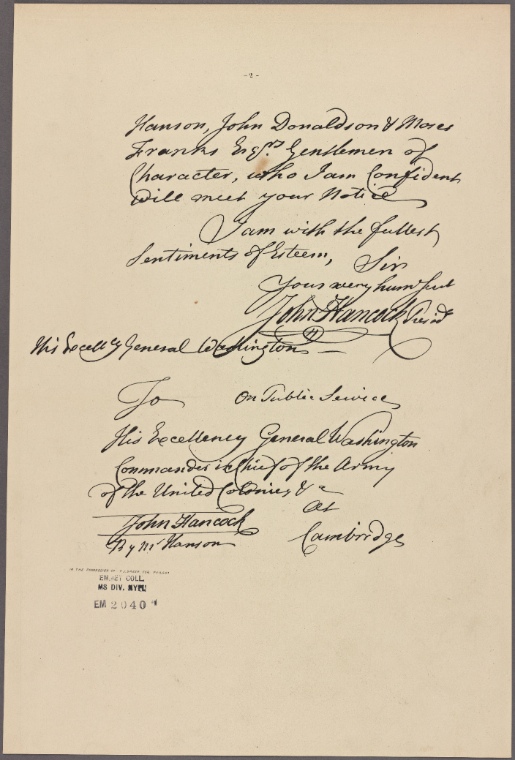 -2-
Hanson, John Donaldson & Moses
Franks Esqrs. Gentlemen of
Character, who I am Confident
will meet your Notice
I am with the fullest
Sentiments of Esteem, Sir
Your very humb Servt
John Hancock Presidt
His Excellcy General Washington
To On Public Service
His Excellency General Washington
Commander in Chief of the Army
of the United Colonies &c
At
John Hancock
Cambridge
By Mr Hanson
EMMET COLL.
MS DIV. NYPL
EM 2040